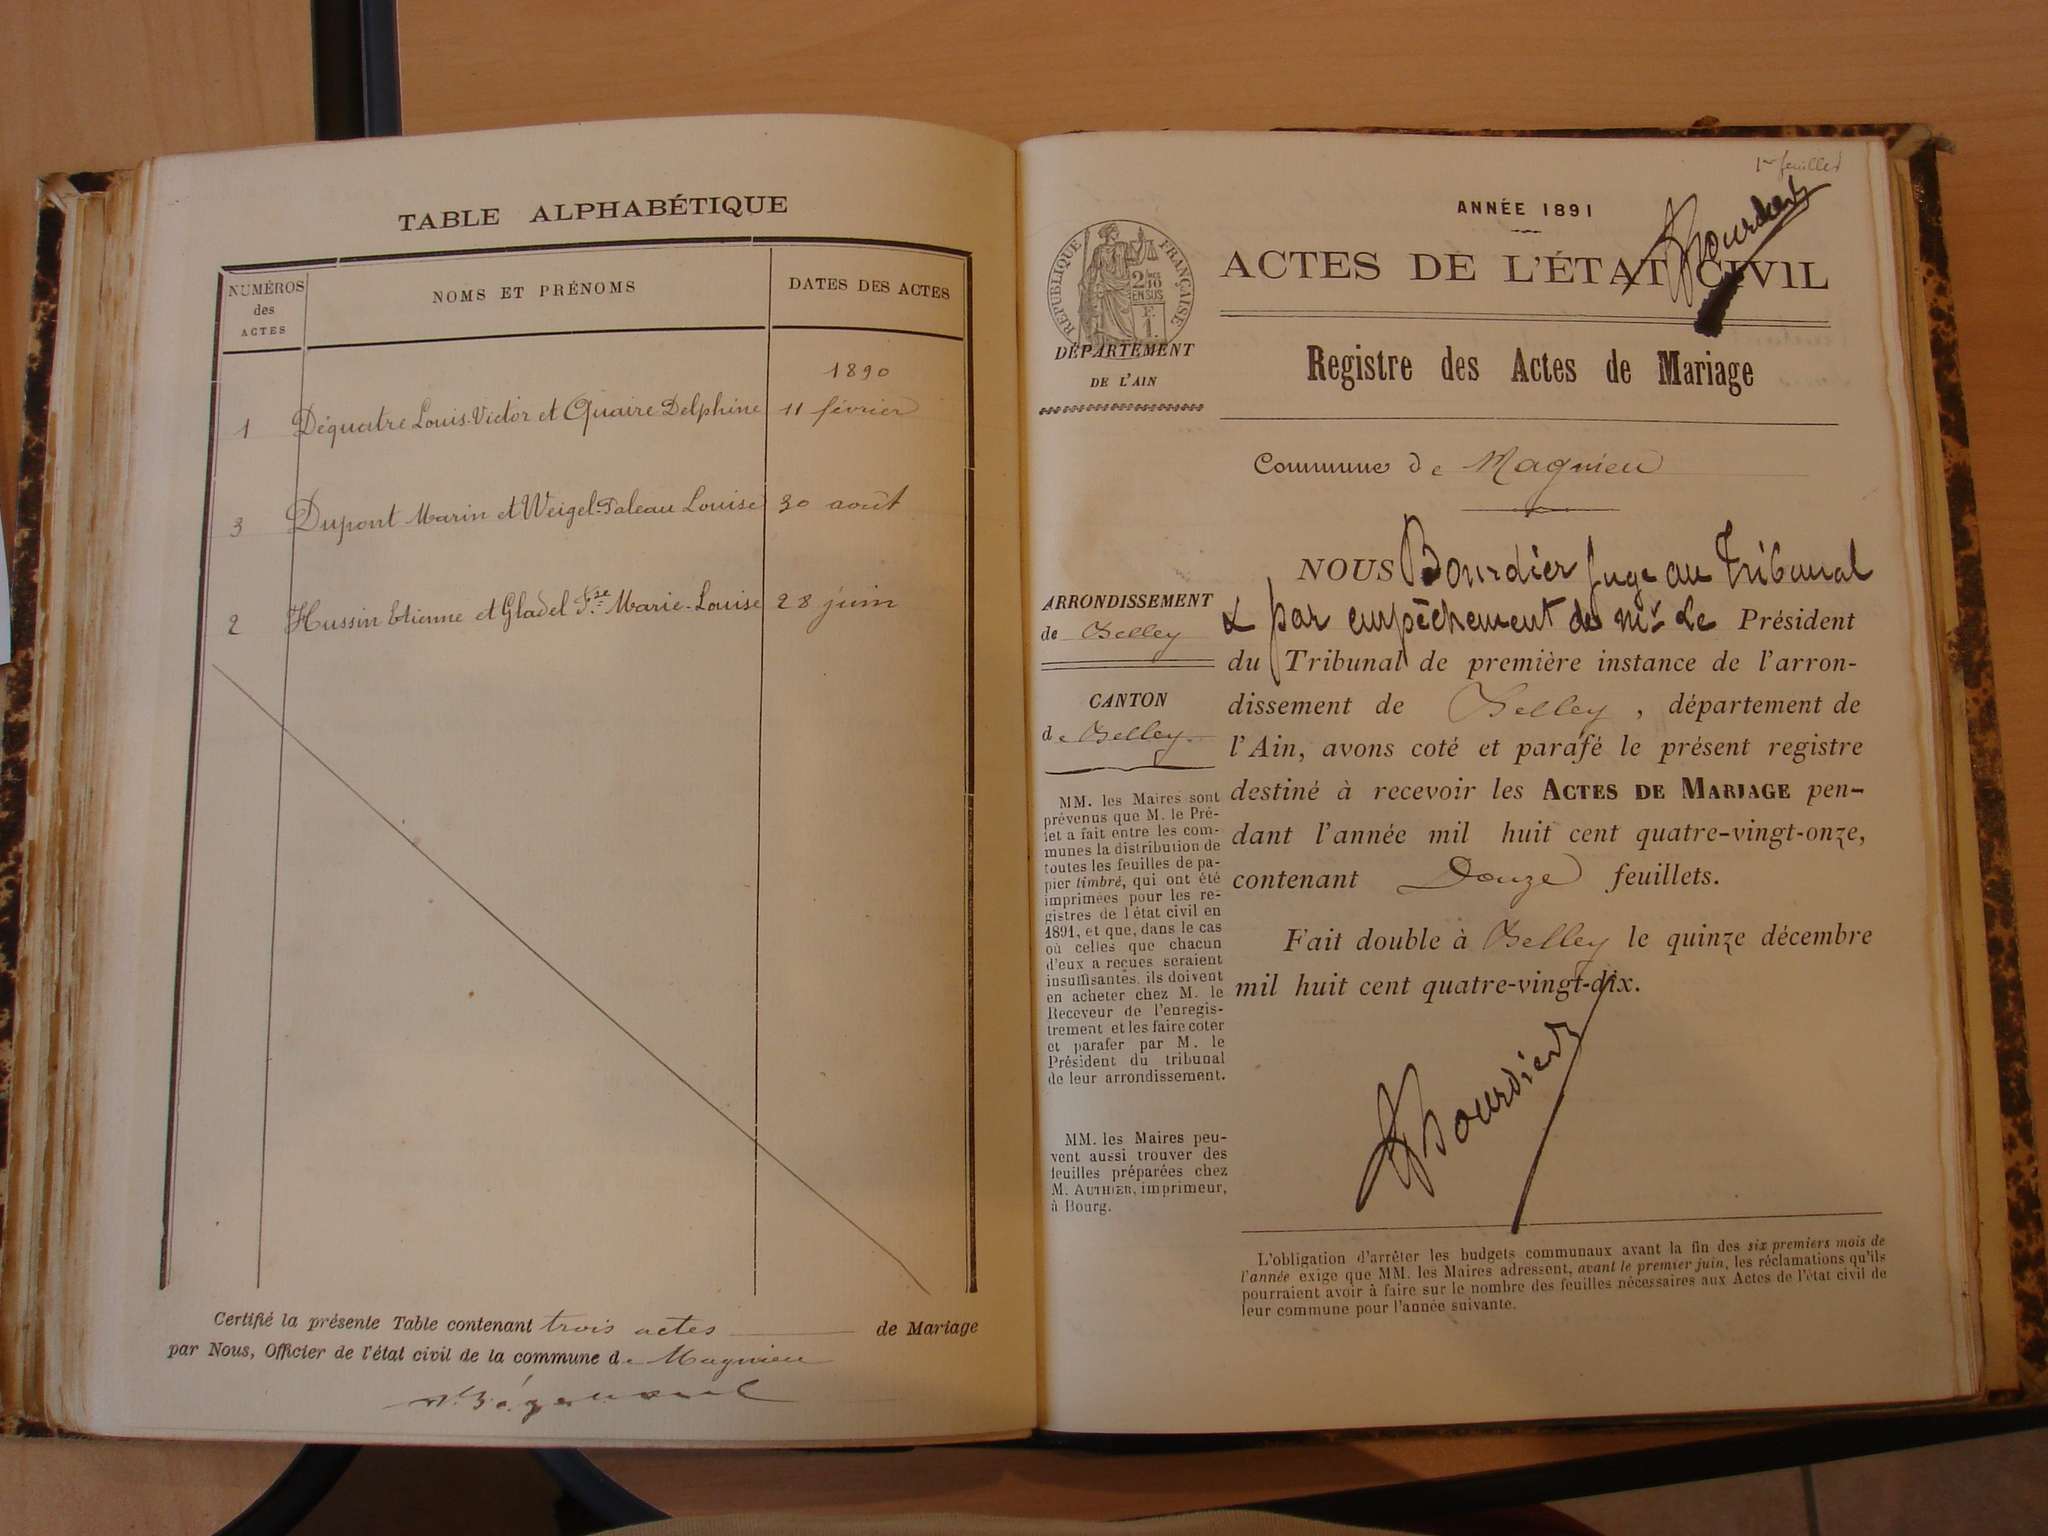 TABLE ALPHABÉTIQUE
NUMÉROS
des
ACTES
NOMS ET PRÉNOMS
DATES DES ACTES
1890
1 Déquatre Louis-Victor et Quaire Delphine 11 février
3 Dupont Marin et Weigel-Paleau Louise 30 août
2 Hussin Etienne et Gladel Fse Marie-Louise 28 juin
Certifié la présente Table contenant trois actes de Mariage
par Nous, Officier de l'état civil de la commune de Magnieu
1er feuillet
Bourdier
ANNÉE 1891
ACTES DE L'ÉTAT CIVIL
RÉPUBLIQUE FRANÇAISE
2/10
EN SUS
F.
1.
DÉPARTEMENT
DE L'AIN
Registre des Actes de Mariage
Commune de Magnieu
ARRONDISSEMENT
de Belley
CANTON
de Belley
MM. les Maires sont
prévenus que M. le Pré-
fet a fait entre les com-
munes la distribution de
toutes les feuilles de pa-
pier timbré, qui ont été
imprimées pour les re-
gistres de l'état civil en
1891, et que, dans le cas
où celles que chacun
d'eux a reçues seraient
insuffisantes, ils doivent
en acheter chez M. le
Receveur de l'enregis-
trement et les faire coter
et parafer par M. le
Président du tribunal
de leur arrondissement.
MM. les Maires peu-
vent aussi trouver des
feuilles préparées chez
M. AUTHIER, imprimeur,
à Bourg.
NOUS Bourdier juge au Tribunal
& par empêchement de Mr Le Président
du Tribunal de première instance de l'arron-
dissement de Belley, département de
l'Ain, avons coté et parafé le présent registre
destiné à recevoir les ACTES DE MARIAGE pen-
dant l'année mil huit cent quatre-vingt-onze,
contenant Douze feuillets.
Fait double à Belley le quinze décembre
mil huit cent quatre-vingt-dix.
Bourdier
L'obligation d'arrêter les budgets communaux avant la fin des six premiers mois de
l'année exige que MM. les Maires adressent, avant le premier juin, les réclamations qu'ils
pourraient avoir à faire sur le nombre des feuilles nécessaires aux Actes de l'état civil de
leur commune pour l'année suivante.